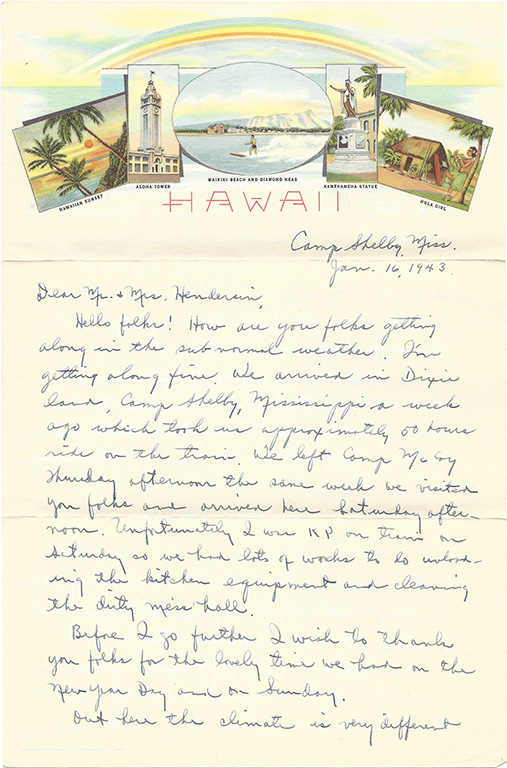 HAWAIIAN SUNSET
ALOHA TOWER
WAIKIKI BEACH AND DIAMOND HEAD
KAMEHAMEHA STATUE
HULA GIRL
HAWAII
Camp Shelby, Miss.
Jan. 16, 1943.
Dear Mr. & Mrs. Hendersin,
Hello folks! How are you folks getting
along in the sub normal weather. I'm
getting along fine. We arrived in Dixie
land, Camp Shelby, Mississippi a week
ago which took us approximately 50 hours
ride on the train. We left Camp McCoy
Thursday afternoon the same week we visited
you folks and arrived here Saturday after-
noon. Unfortunately I was KP on train on
Saturday so we had lots of works to do unload-
ing the kitchen equipment and cleaning
the dirty mess hall.
Before I go further I wish to thank
you folks for the lovely time we had on the
New Year Day and on Sunday.
Out here the climate is very different